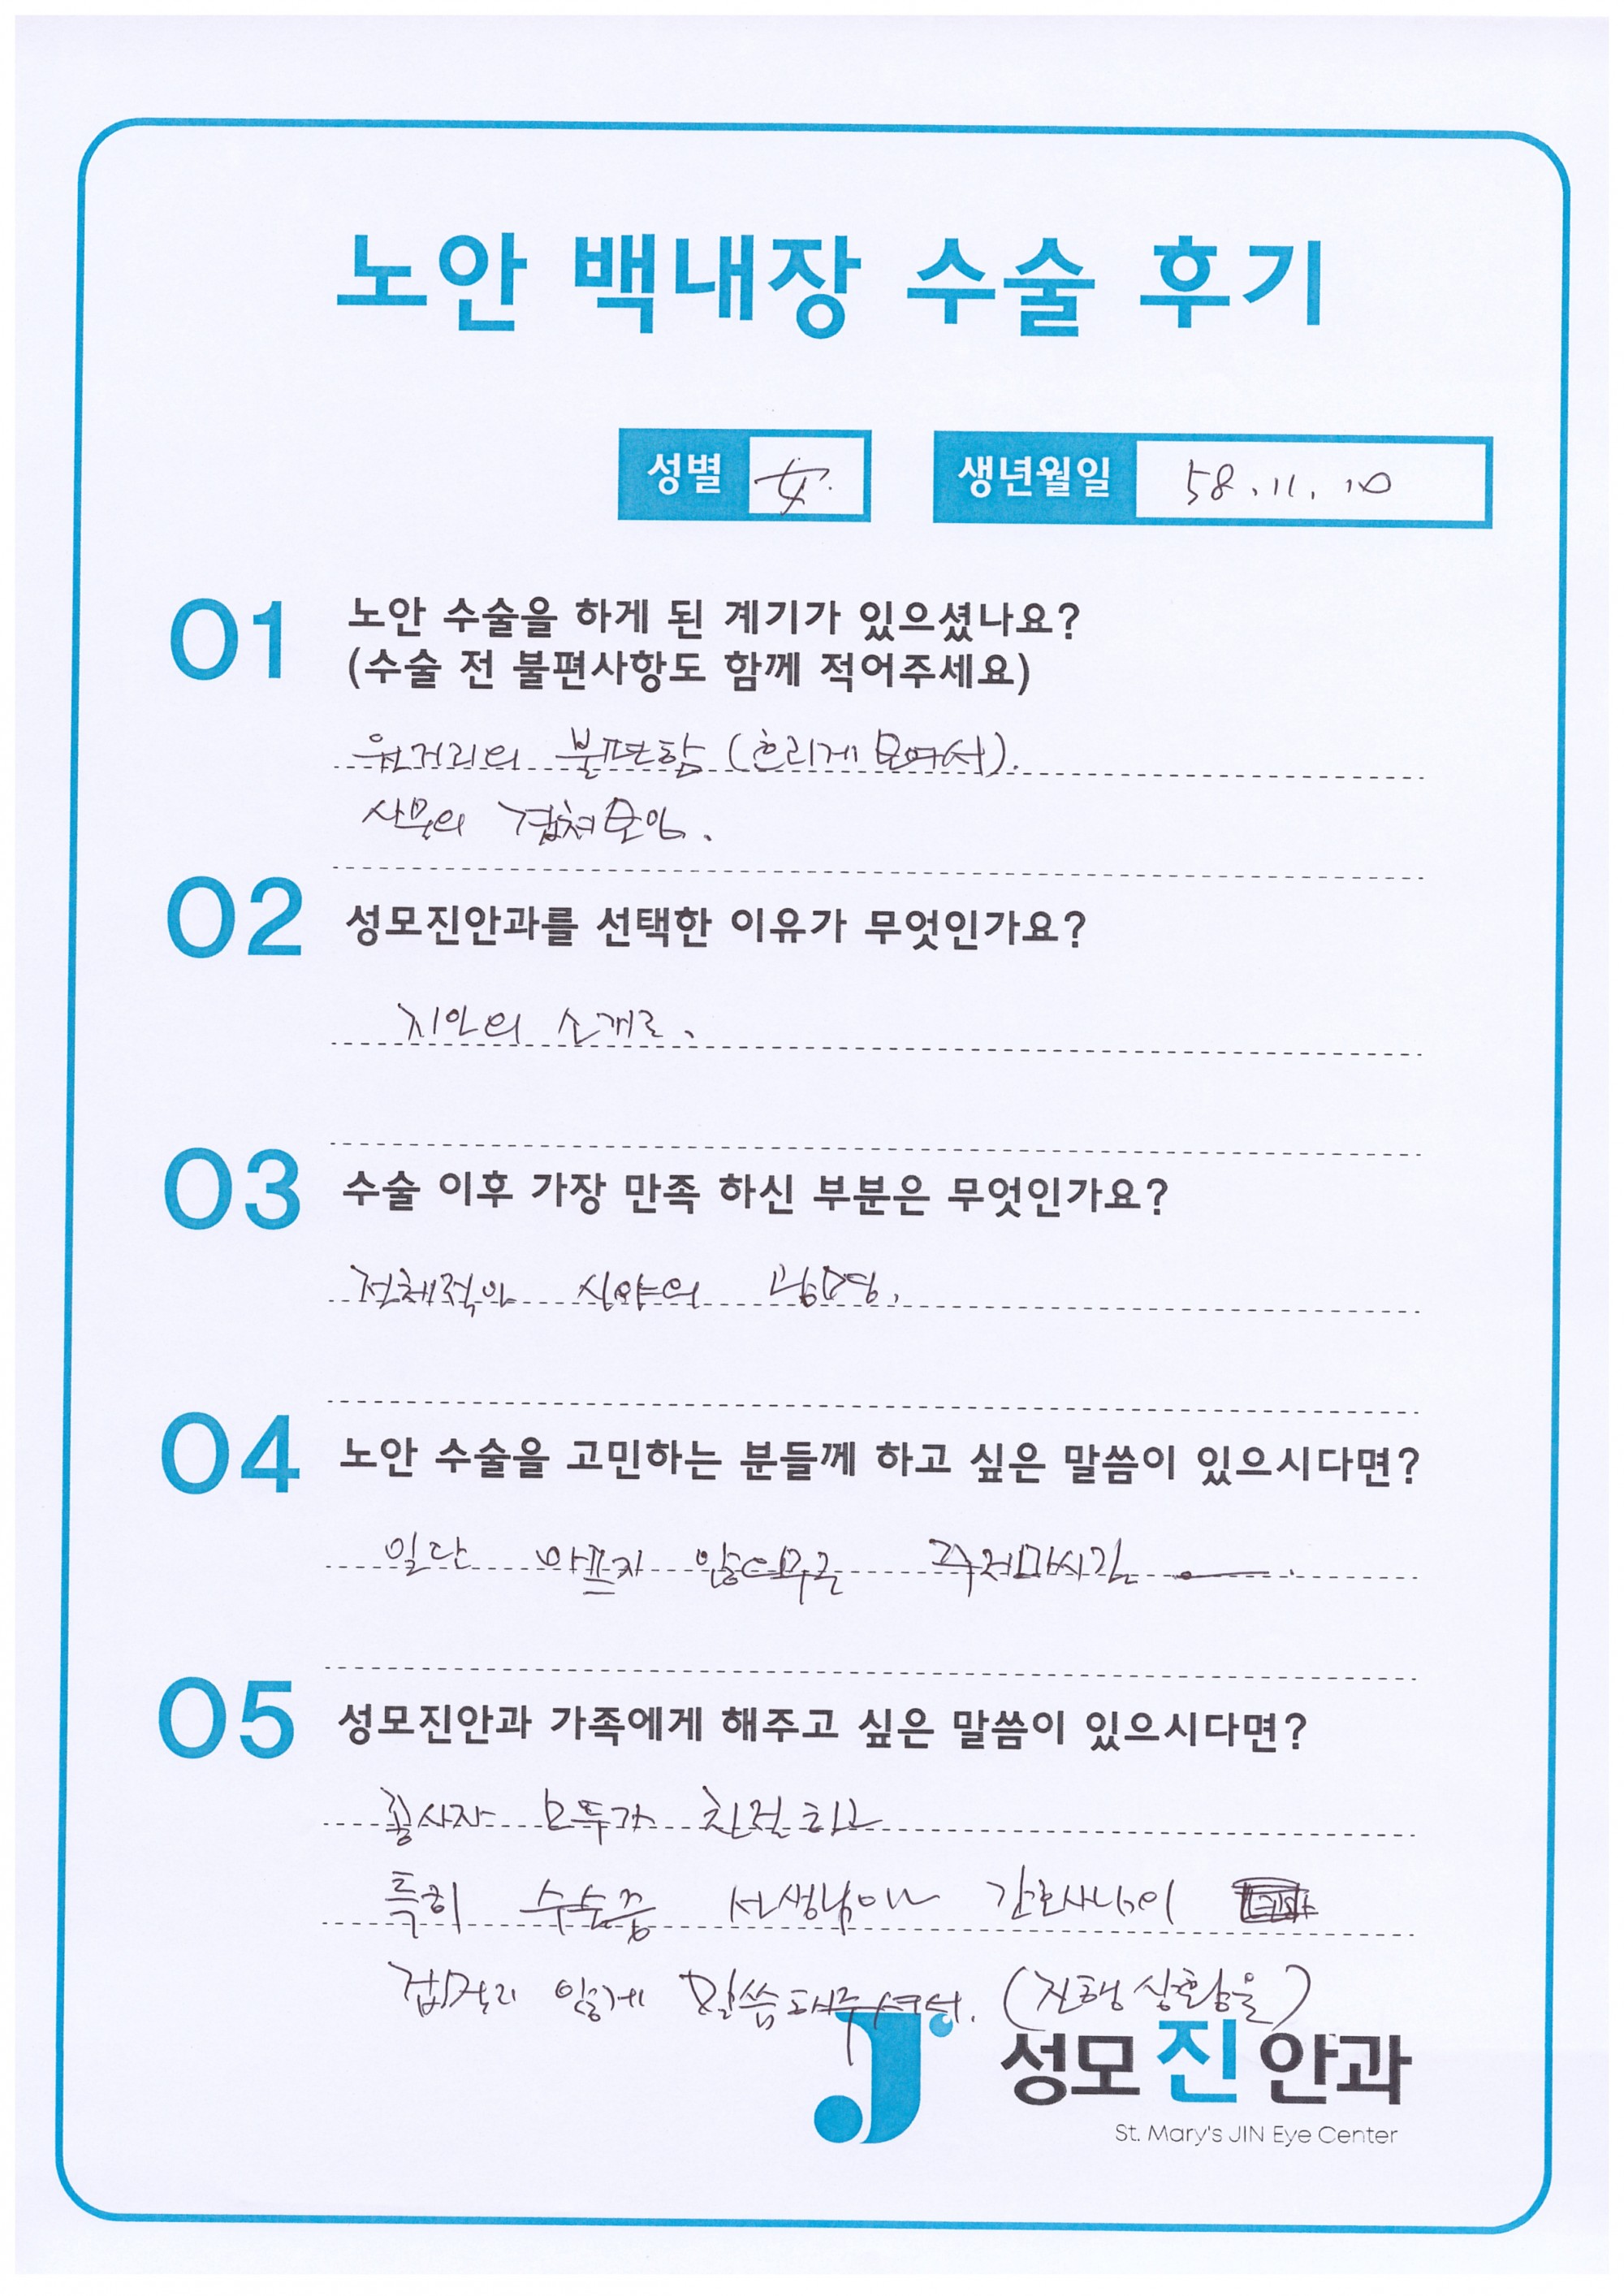 노안 백내장 수술 후기
성별 女.
생년월일 58. 11. 10
01 노안 수술을 하게 된 계기가 있으셨나요?
(수술 전 불편사항도 함께 적어주세요)
원거리의 불편함 (흐리게 보여서).
사물의 겹쳐보임.
02 성모진안과를 선택한 이유가 무엇인가요?
지인의 소개로.
03 수술 이후 가장 만족 하신 부분은 무엇인가요?
전체적인 시야의 광명.
04 노안 수술을 고민하는 분들께 하고 싶은 말씀이 있으시다면?
일단 아프지 않으므로 주저마시길
05 성모진안과 가족에게 해주고 싶은 말씀이 있으시다면?
종사자 모두가 친절하고
특히 수술중 선생님이나 간호사님이
말씀해주셔서. (진행 상황을)
성모진안과
St. Mary's JIN Eye Center